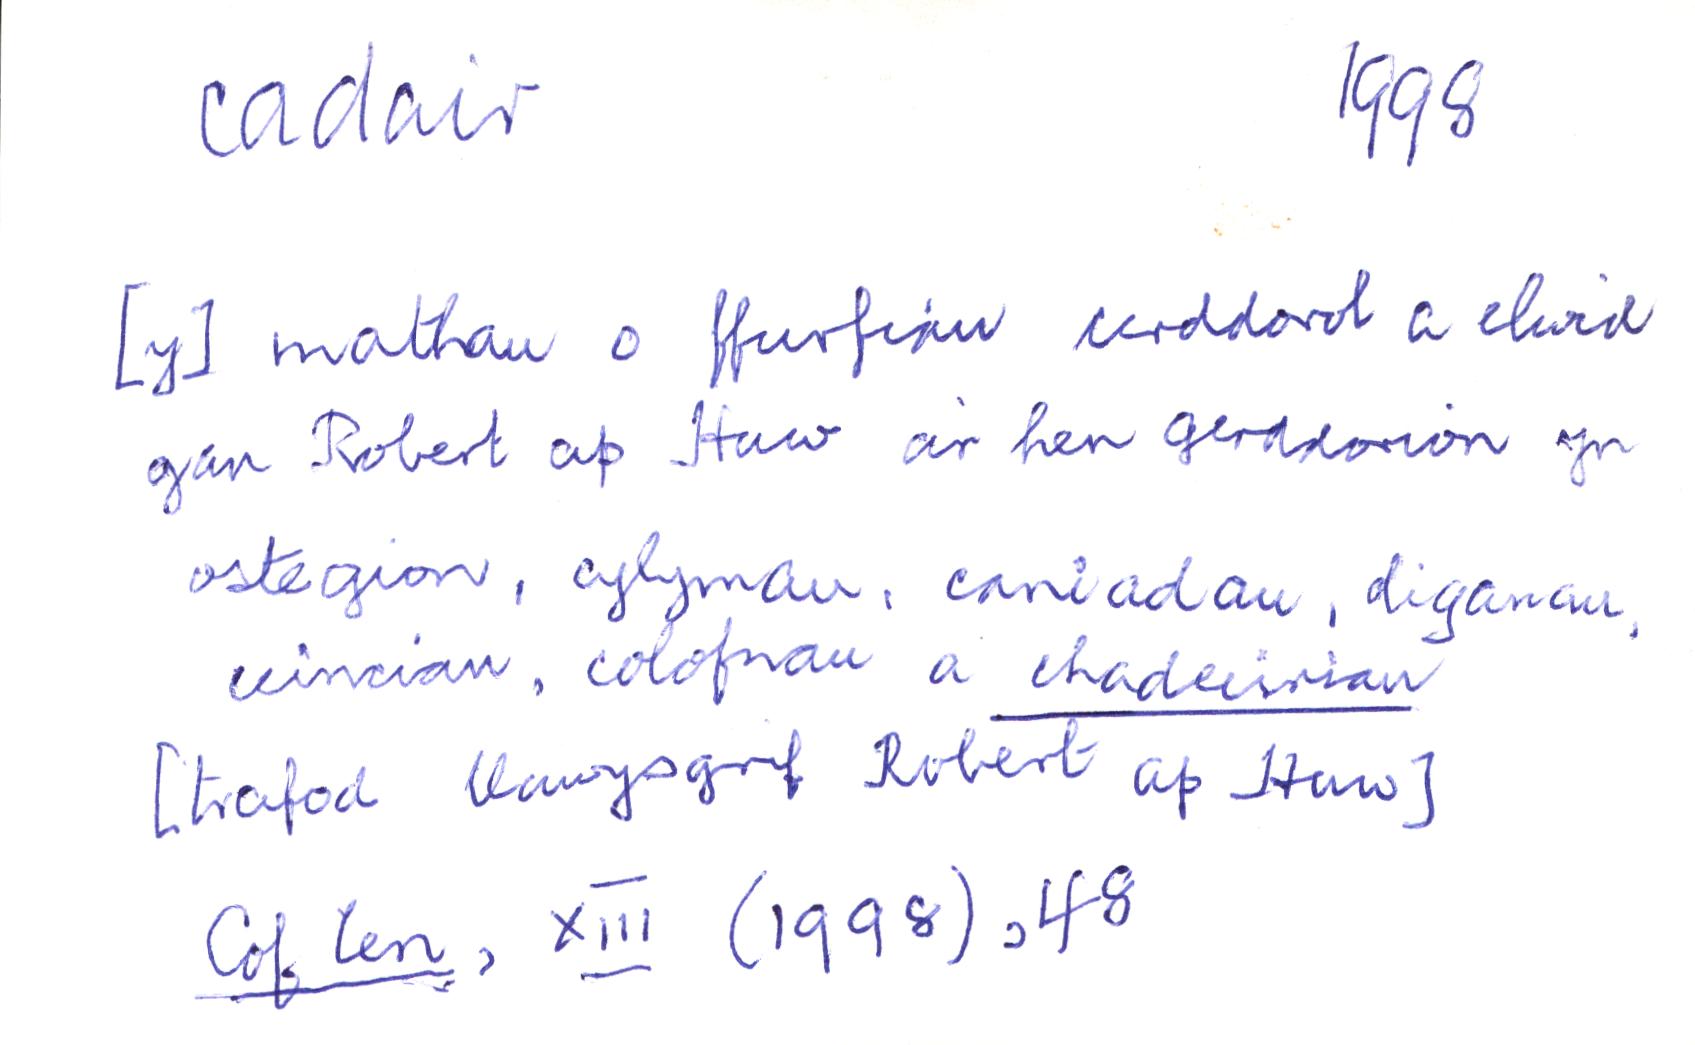 cadair 1998
[y] mathau o ffurfiau cerddorol a elwid
gan Robert ap Huw a'r hen gerddorion yn
ostegion, cylymau, caniadau, diganau,
ceinciau, colofnau a chadeiriau
[trafod llawysgrif Robert ap Huw]
Cof Cen, XIII (1998), 48